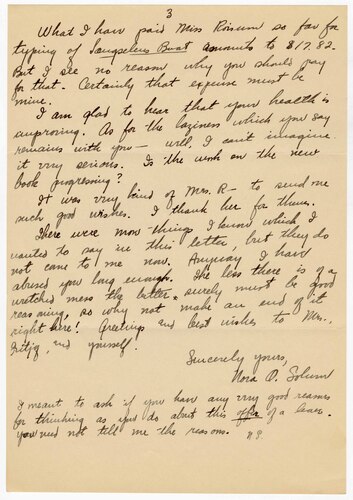 3
What I have paid Miss Roisum so far for
typing of Langselens Baat amounts to $17.82.
But I see no reason why you should pay
for that. Certainly that expense must be
mine.
I am glad to hear that your health is
improving. As for the laziness which you say
remains with you — well, I can't imagine
it very serious. Is the work on the new
book progressing?
It was very kind of Mrs. R— to send me
such good wishes. I thank her for them.
There were more things I know which I
wanted to say in this letter, but they do
not come to me now. Anyway I have
abused you long enough. The less there is of a
wretched mess the better, surely must be good
reasoning, so why not make an end of it
right here! Greetings and best wishes to Mrs.,
and yourself.
Sincerely yours,
Nora O. Solum
I meant to ask if you have any very good reasons
for thinking as you do about this offer of a
you need not tell me the reasons. N.S.